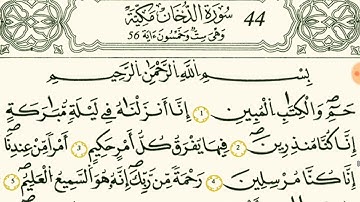 سُورَةُ الدُّخَانِ مَكِّيَّةٌ 44
وَهِيَ سِتٌّ وَخَمْسُونَ ءَايَةً 56
بِسْمِ اللَّهِ الرَّحْمَٰنِ الرَّحِيمِ
حٰمٓ وَالْكِتَٰبِ الْمُبِينِ 1 إِنَّا أَنزَلْنَٰهُ فِي لَيْلَةٍ مُّبَٰرَكَةٍ
إِنَّا كُنَّا مُنذِرِينَ 2 فِيهَا يُفْرَقُ كُلُّ أَمْرٍ حَكِيمٍ 3 أَمْرًا مِّنْ عِندِنَا
إِنَّا كُنَّا مُرْسِلِينَ 4 رَحْمَةً مِّن رَّبِّكَ إِنَّهُ هُوَ السَّمِيعُ الْعَلِيمُ 5